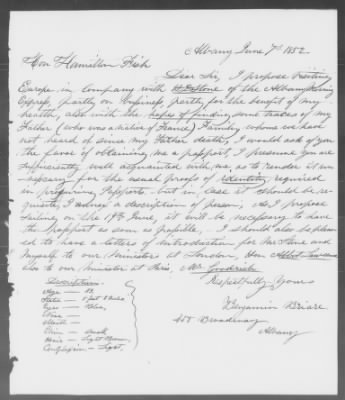 Albany June 7th 1852
Hon Hamilton Fish
Dear Sir, I propose visiting
Europe in company with of the Albany
Express, partly on business, partly for the benefit of my
health, also with the hopes of finding some traces of my
Father (who was a native of France) Family, whome we had
not heard of since my Father death, I would ask of you
the favor of obtaining me a passport, I presume you are
sufficiently well acquainted with me so as to render it un-
necessary for the usual proofs of Identity required
in procuring Passports. but in case it should be re-
quisite, I annex a description of person, As I propose
sailing on the 19th June, it will be necessary to have
the passport as soon as possible, I should also be pleas-
ed to have a letters of introduction for Mr Stone and
myself to our Minister at London, Hon Abbot Lawrence
also to our Minister at Paris,
Respectfully Yours
Benjamin Briare
Broadway
Albany
Description
Age —
Eyes — Blue,
Nose —
Mouth —
Chin —
Hair — Light Brown
Complexion — Light,